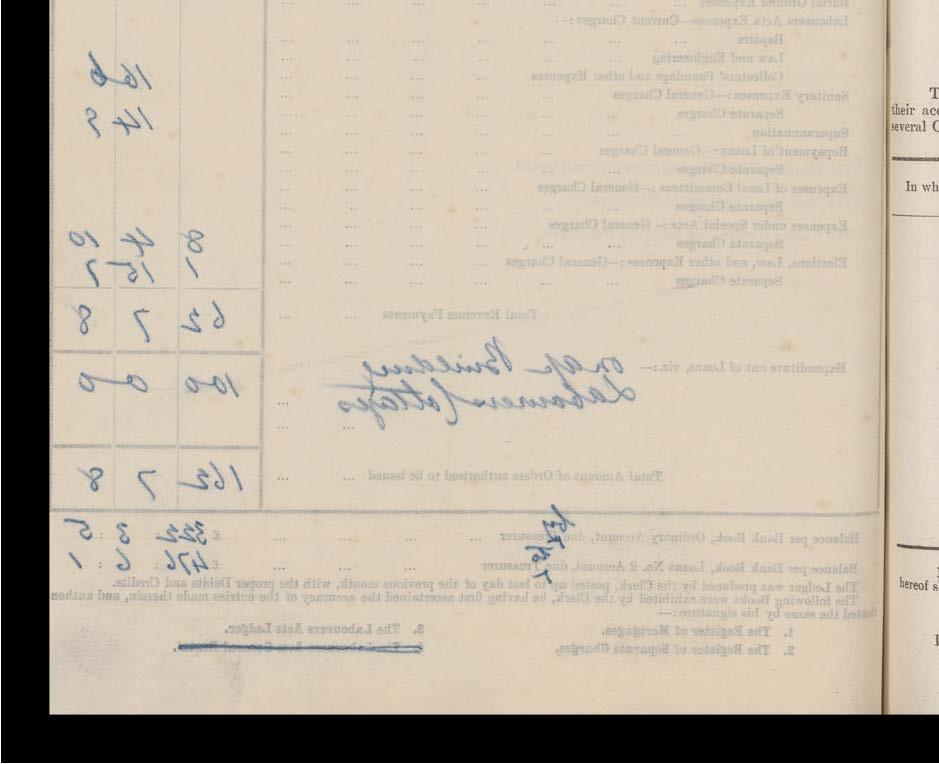 Burial Ground Expenses
Labourers Acts Expenses—Current Charges:—
Repairs
Law and Engineering
Collectors' Poundage and other Expenses
Sanitary Expenses:—General Charges
Separate Charges
Superannuation
Repayment of Loans:—General Charges
Separate Charges
Expenses of Local Committees:—General Charges
Separate Charges
Expenses under Special Acts:—General Charges
Separate Charges 8 4 10
Elections, Law, and other Expenses:—General Charges 1 15 7
Separate Charges
Total Revenue Payments 62 7 8
Expenditure out of Loans, viz:— on a/c Building
Labourers Cottages 100 0 0
Total Amount of Orders authorised to be issued 162 7 8
Balance per Bank Book, Ordinary Account, due Treasurer £ 322 : 3 : 5
Balance per Bank Book, Loans No. 2 Account, due Treasurer 476 : 6 : 1
The Ledger was produced by the Clerk, posted up to last day of the previous month, with the proper Debits and Credits.
The following Books were exhibited by the Clerk, he having first ascertained the accuracy of the entries made therein, and authen
ticated the same by his signature:—
1. The Register of Mortgages. 3. The Labourers Acts Ledger.
2. The Register of Separate Charges.
their acc
several C
In wh
hereof s